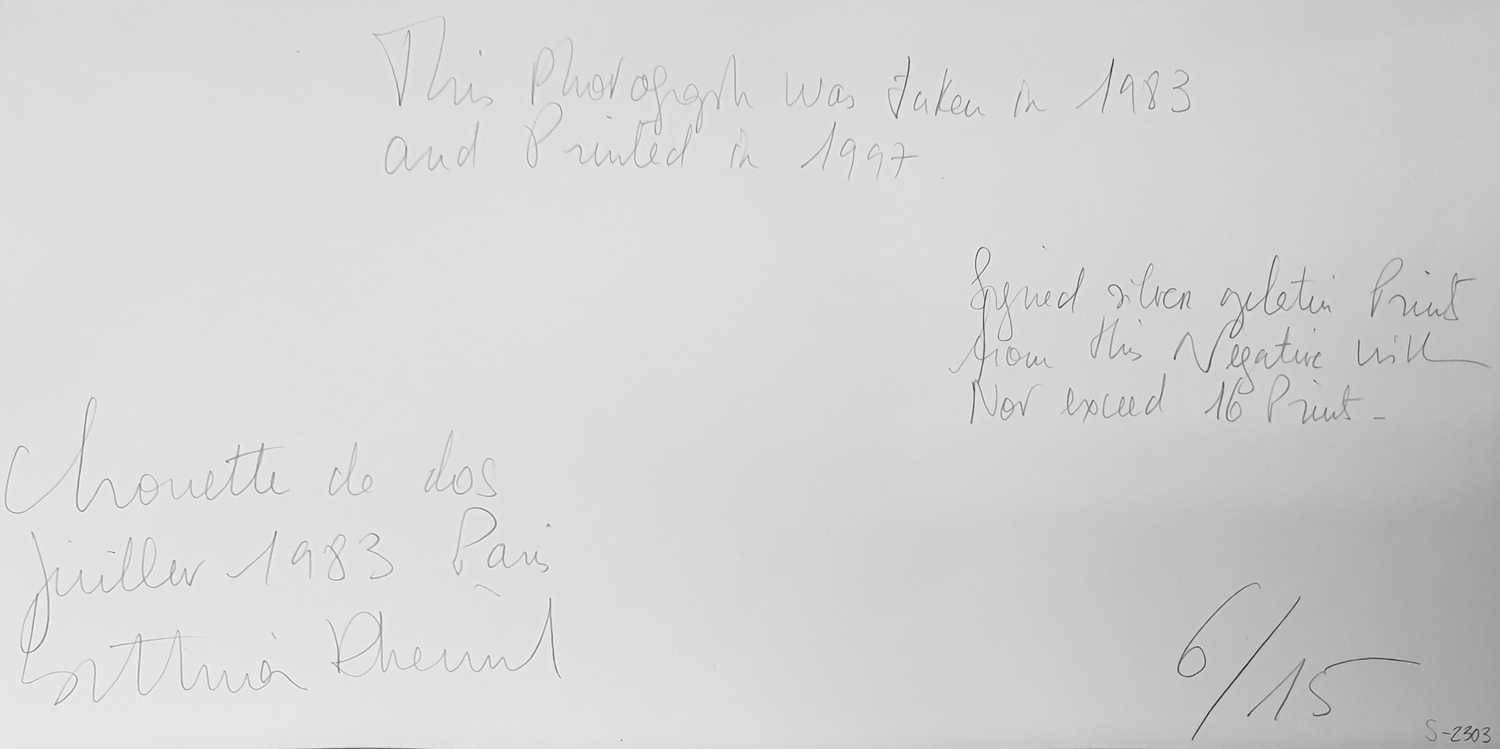 This Photograph was taken in 1983
and Printed in 1997
Signed silver gelatin Print
from this Negative will
Not exceed 16 Print -
Chouette de dos
Juillet 1983 Paris
Bettina Rheims
6/15
S-2303